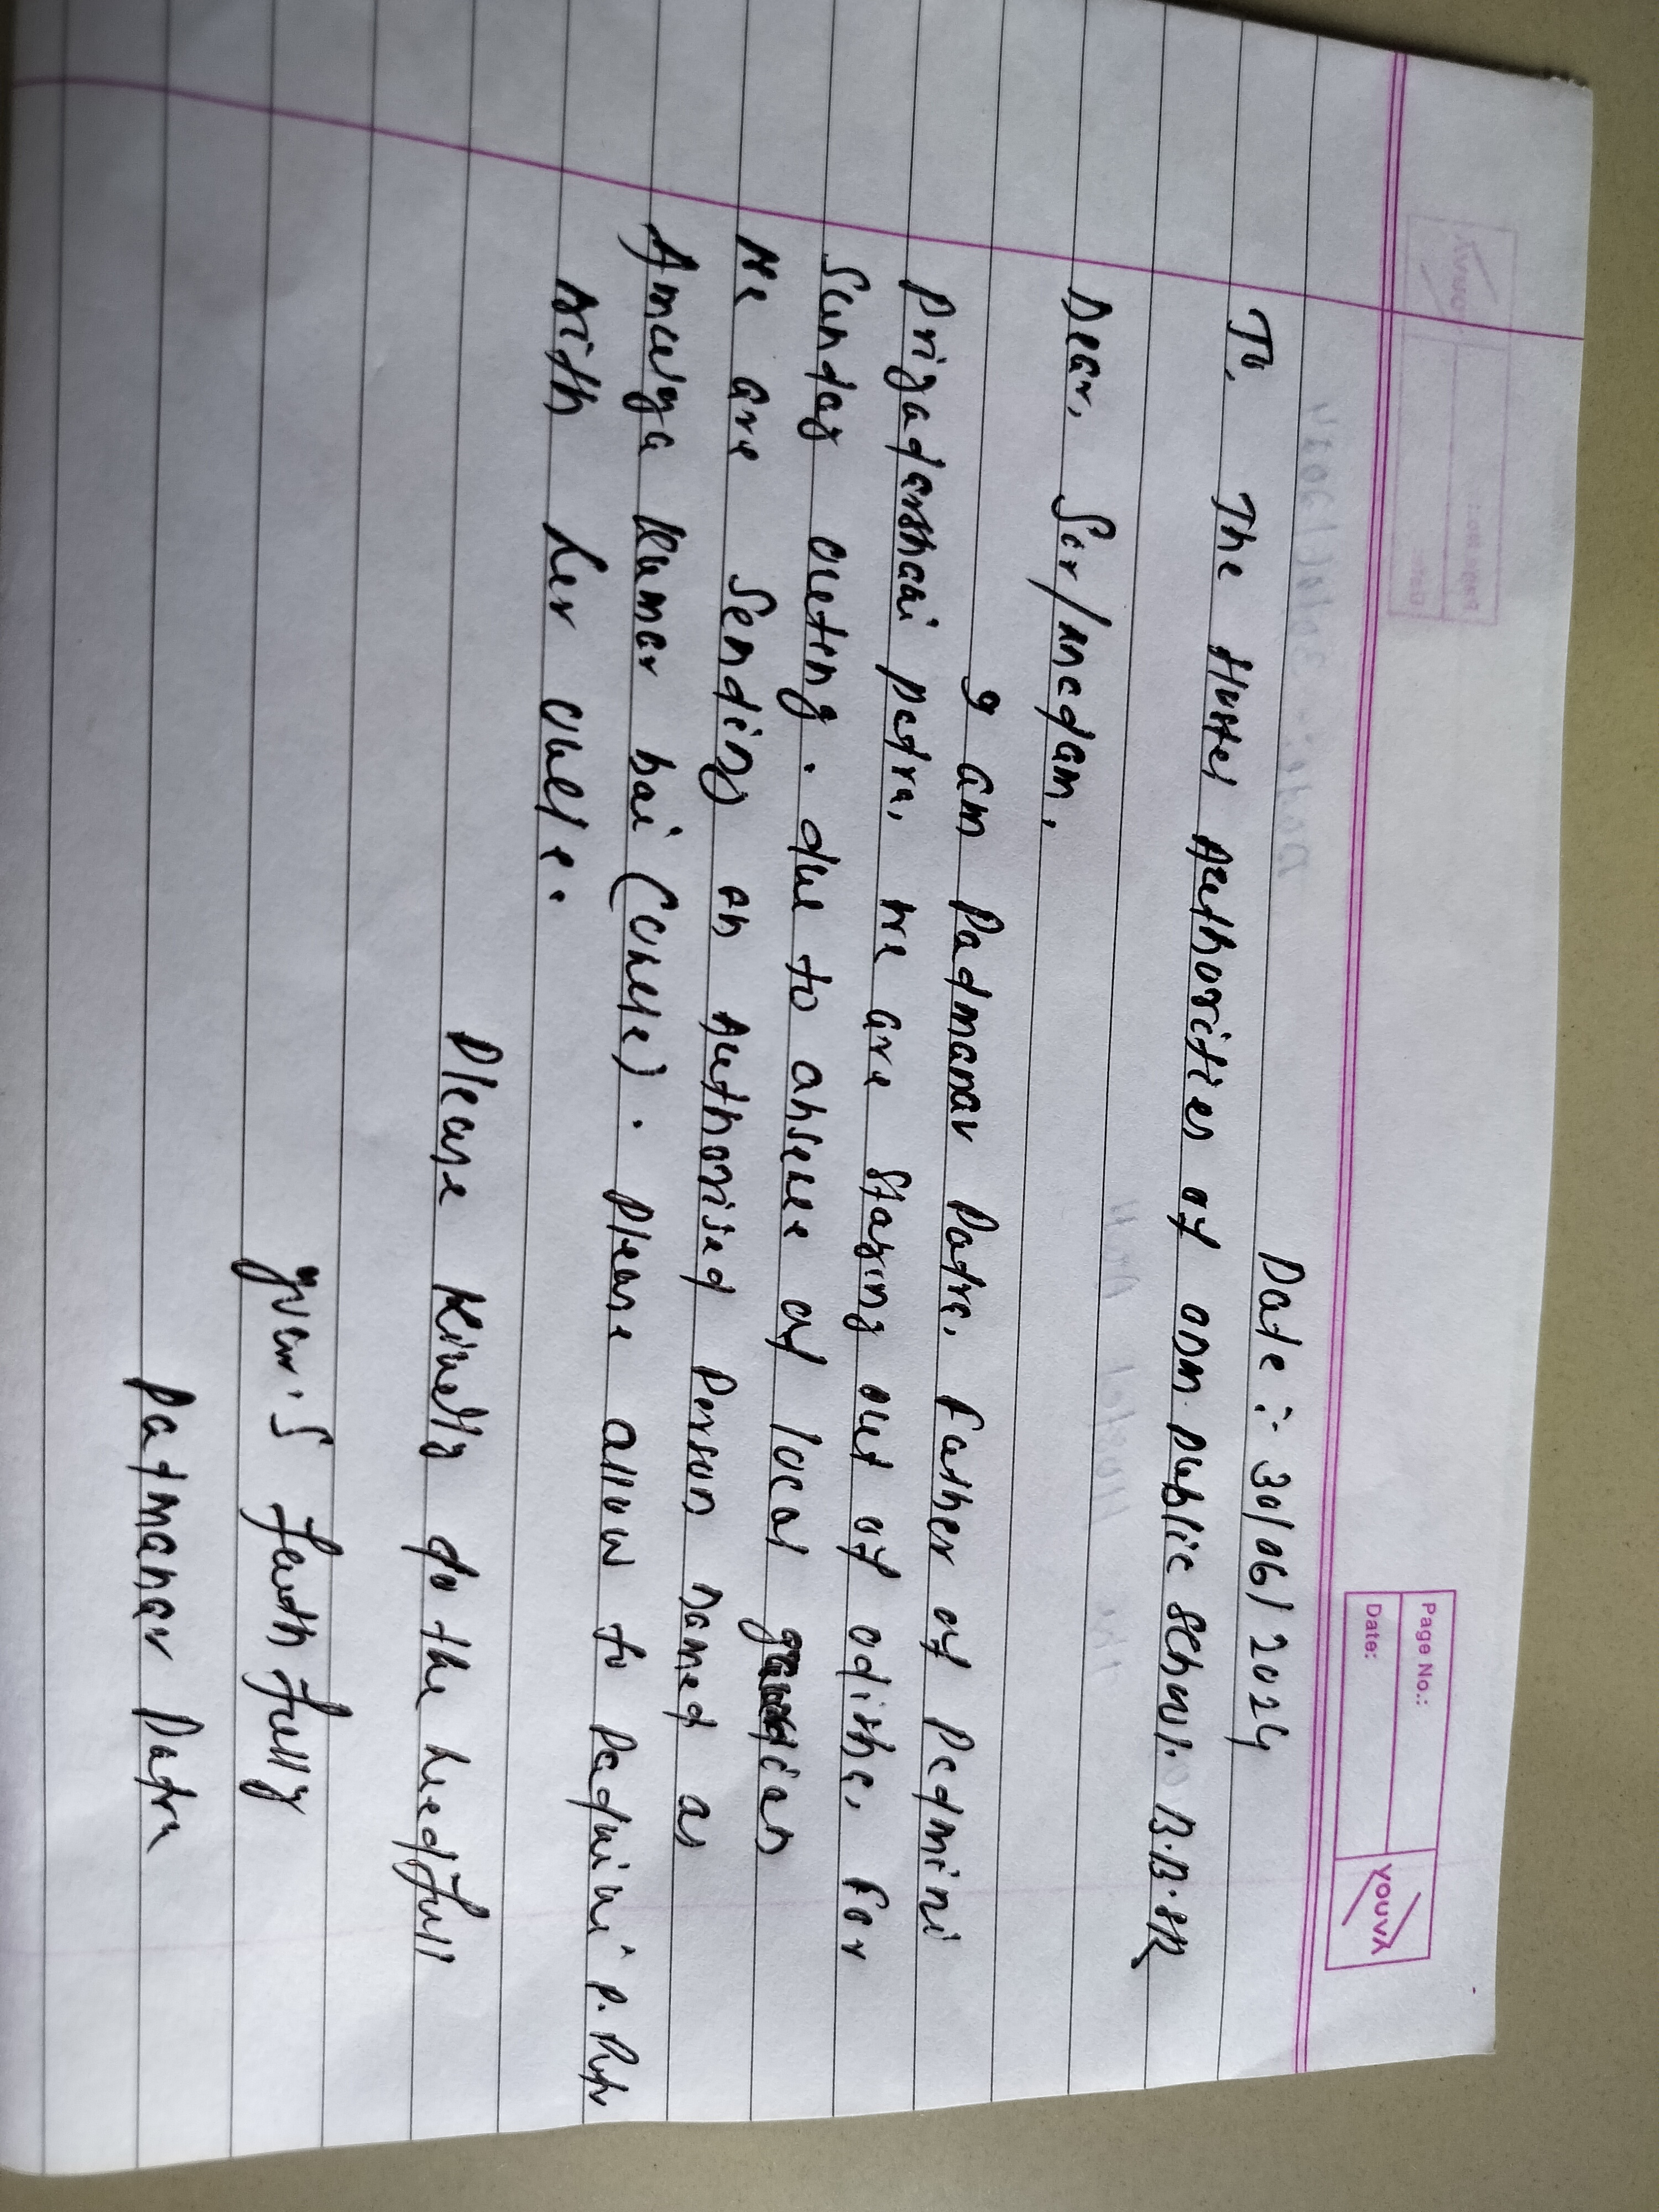 Page No.:
Date:
YOUVA
Date :- 30/06/2024
To, The Hostel Authorities of ODM Public School. B.B.SR
Dear, Sir/madam,
I am Padmanav Patra, Father of Padmini
Priyadarshani patra, we are staying out of odisha, For
Sunday outing. due to absence of local guardian
We are Sending an Authorised Person named as
Amulya Kumar bai (Uncle). please allow to Padmini P. Patra
with her uncle.
Please Kindly do the needfull
Your's faithfully
Padmanav Patra